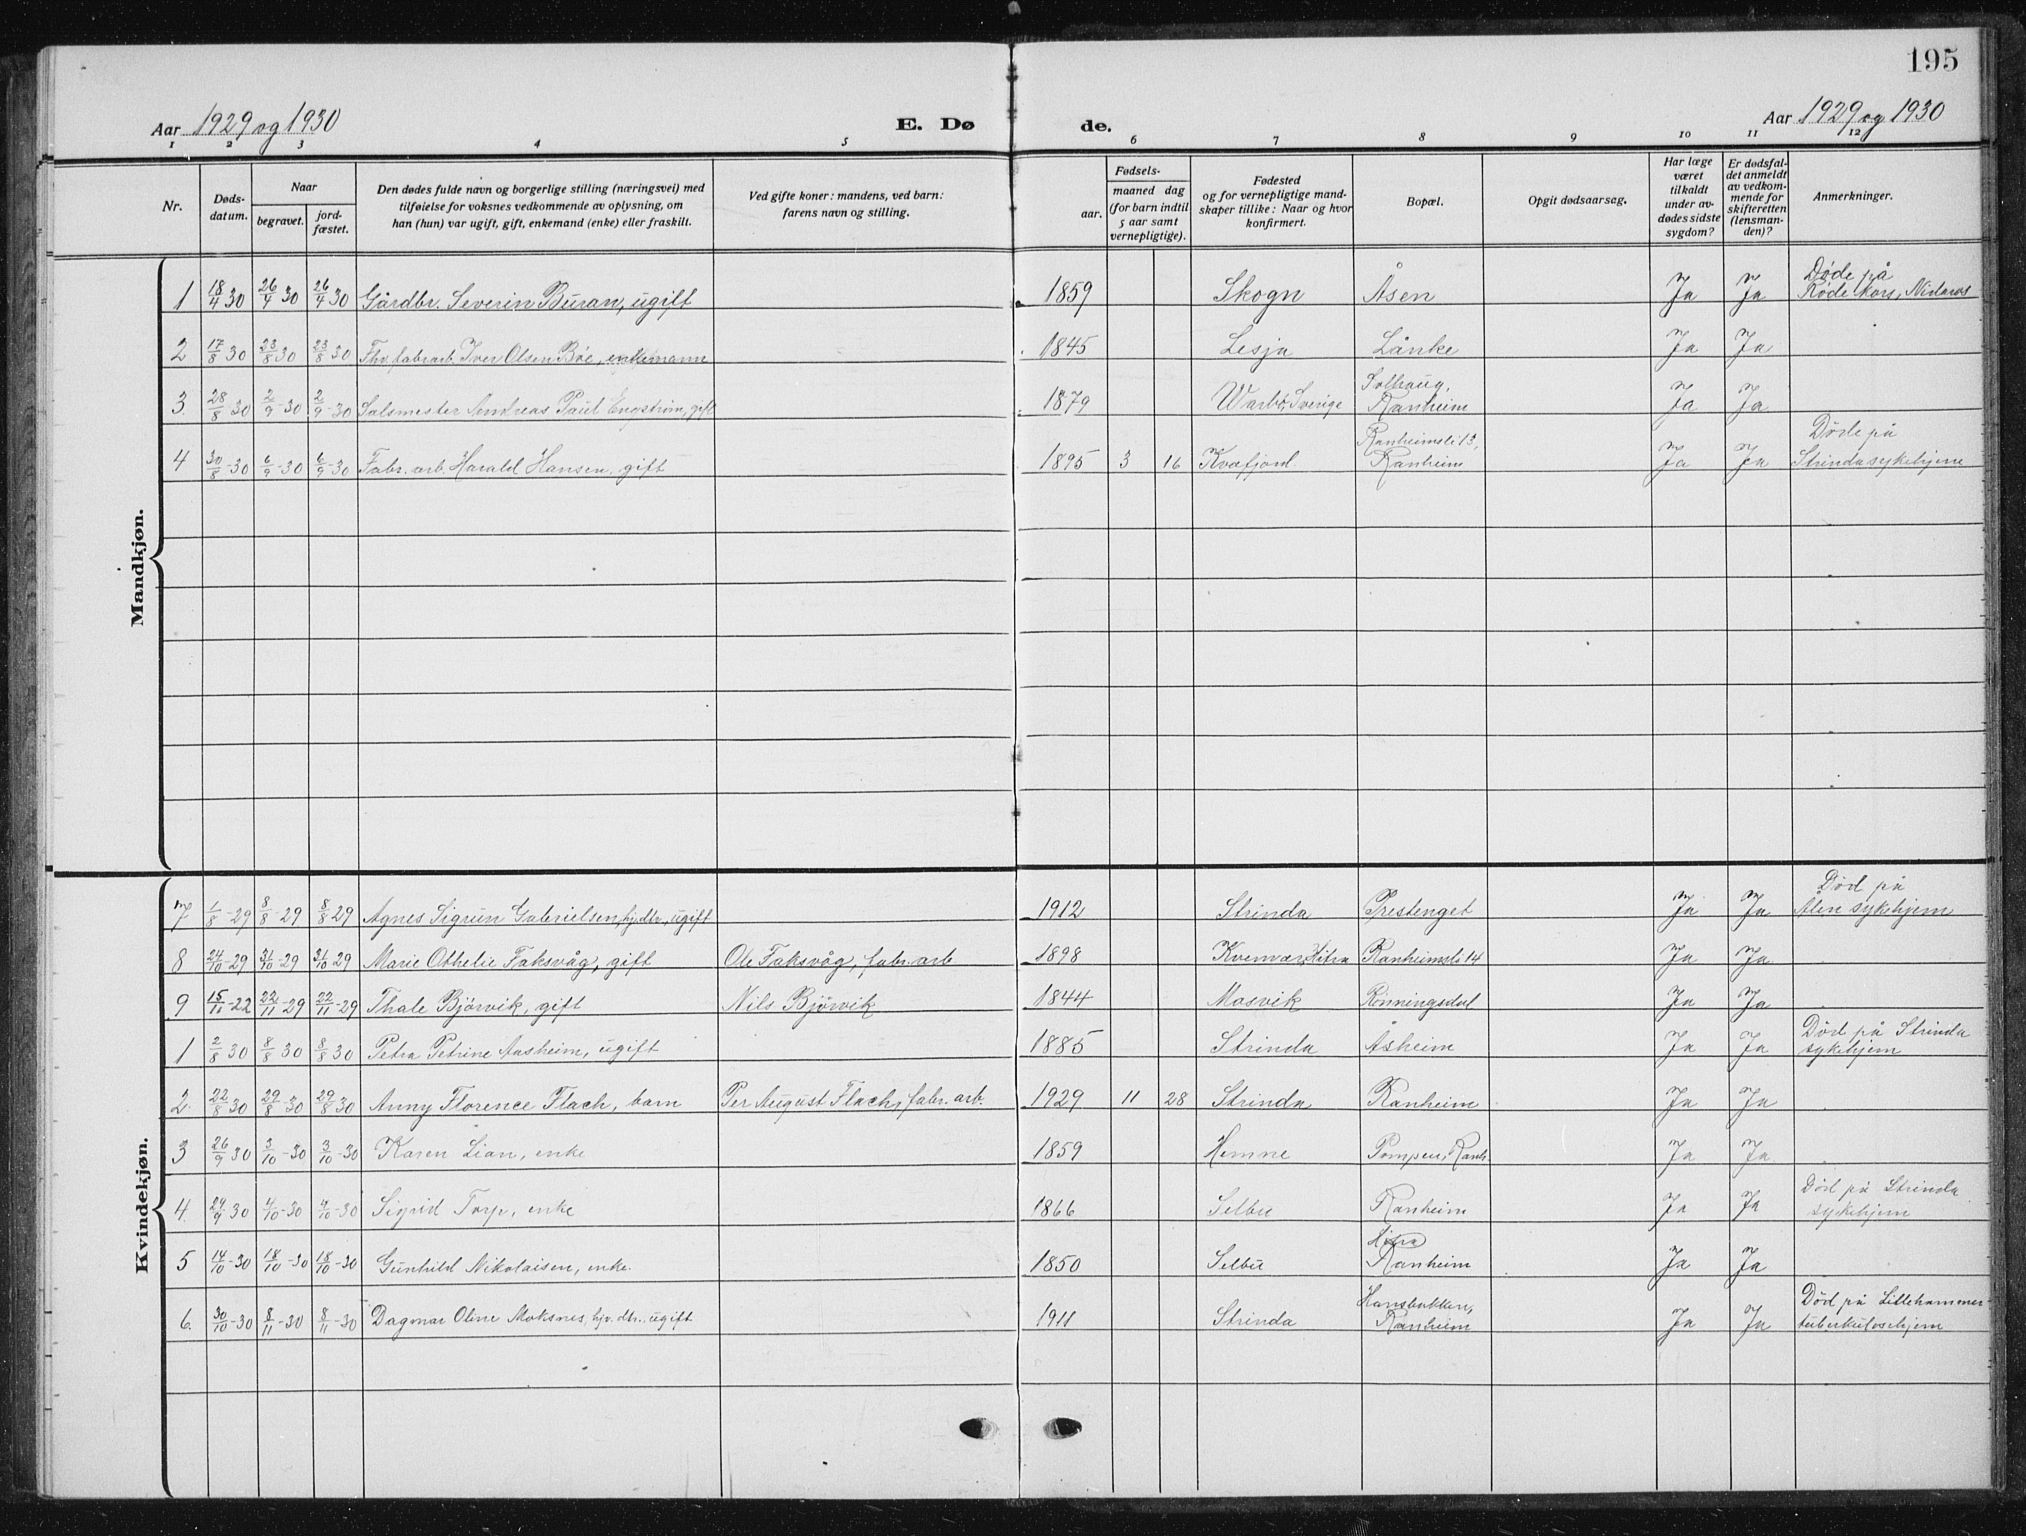 195
Aar 1929 og 1930 E. Dø de. Aar 1929 og 1930
1 2 3 4 5 6 7 8 9 10 11 12
Nr. Døds-datum. Naar begravet. jord-fæstet. Den dødes fulde navn og borgerlige stilling (næringsvei) med tilføielse for voksnes vedkommende av oplysning, om han (hun) var ugift, gift, enkemand (enke) eller fraskilt. Ved gifte koner: mandens, ved barn: farens navn og stilling. Fødsels- aar. maaned dag (for barn indtil 5 aar samt vernepligtige). Fødested og for vernepligtige mandskaper tillike: Naar og hvor konfirmert. Bopæl. Opgit dødsaarsag. Har læge været tilkaldt under avdødes sidste sygdom? Er dødsfaldet anmeldt av vedkommende for skifteretten (lensmanden)? Anmerkninger.
Mandkjøn.
1 18/4 30 26/4 30 26/4 30 Gårdbr. Severin Buran, ugift 1859 Skogn Åsen Ja Ja Døde på Røde Kors, Nidaros
2 17/8 30 23/8 30 23/8 30 Fhv. fabr.arb. Iver Olsen Bøe, enkemann 1845 Lesja Lånke Ja Ja
3 28/8 30 2/9-30 2/9-30 Salsmester Andreas Paul Engstrøm, gift 1879 Sverige Solhaug, Ranheim Ja Ja
4 30/8-30 6/9-30 6/9-30 Fabr. arb. Harald Hansen, gift 1895 3 16 Kvæfjord Ranheimsli 13, Ranheim Ja Ja Døde på Strinda sykehjem
Kvindekjøn.
7 1/8-29 8/8-29 8/8 29 Agnes Sigrun Gabrielsen, hj.dtr, ugift 1912 Strinda Prestenget Ja Ja Død på Ålen sykehjem
8 24/10-29 31/10-29 31/10 29 Marie Othelie Faksvåg, gift Ole Faksvåg, fabr. arb 1898 Kvenvær, Hitra Ranheimsli 14 Ja Ja
9 15/11-22 22/11-29 22/11-29 Thale Bjørvik, gift Nils Bjørvik 1844 Mosvik Rønningsdal Ja Ja
1 2/8 30 8/8 30 8/8 30 Petra Petrine Aasheim, ugift 1885 Strinda Åsheim Ja Ja Død på Strinda sykehjem
2. 22/8 30 29/8-30 29/8 30 Anny Florence Flach, barn Per August Flach, fabr. arb. 1929 11 28 Strinda Ranheim Ja Ja
3 26/9 30 3/10-30 3/10-30 Karen Lian, enke 1859 Hemne Pompen, Ranh. Ja Ja
4. 29/9 30 4/10-30 4/10-30 Sigrid Torp, enke 1866 Selbu Ranheim Ja Ja Død på Strinda sykehjem
5 14/10-30 18/10-30 18/10-30 Gunhild Nikolaisen, enke. 1850 Selbu Hitra Ranheim Ja Ja
6. 30/10-30 8/11-30 8/11-30 Dagmar Oline Moksnes, hjv. dtr. ugift 1911 Strinda Hansbakken, Ranheim Ja Ja Død på Lillehammer tuberkulosehjem